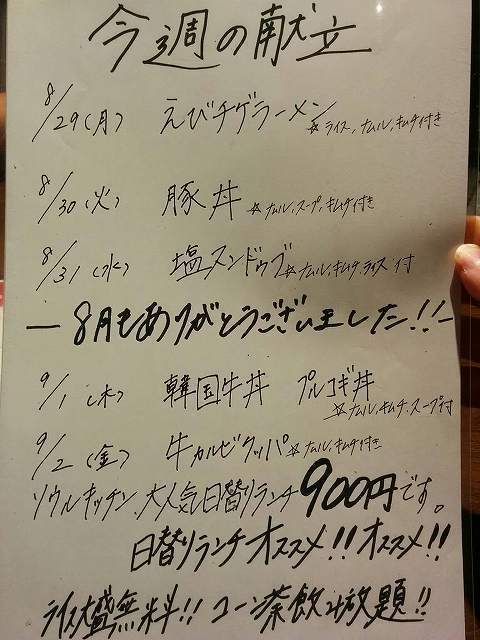 今週の献立
8/29(月) えびチゲラーメン
☆ライス,ナムル,キムチ付き
8/30(火) 豚丼 ☆ナムル,スープ,キムチ付き
8/31(水) 塩スンドゥブ☆ナムル,キムチ,ライス付
ー8月もありがとうございました!!ー
9/1(木) 韓国牛丼 プルコギ丼
☆ナムル,キムチ,スープ付
9/2(金) 牛カルビクッパ☆ナムル,キムチ付き
ソウルキッチン.大人気日替りランチ900円です。
日替りランチオススメ!!オススメ!!
ライス大盛無料!!コーン茶飲み放題!!